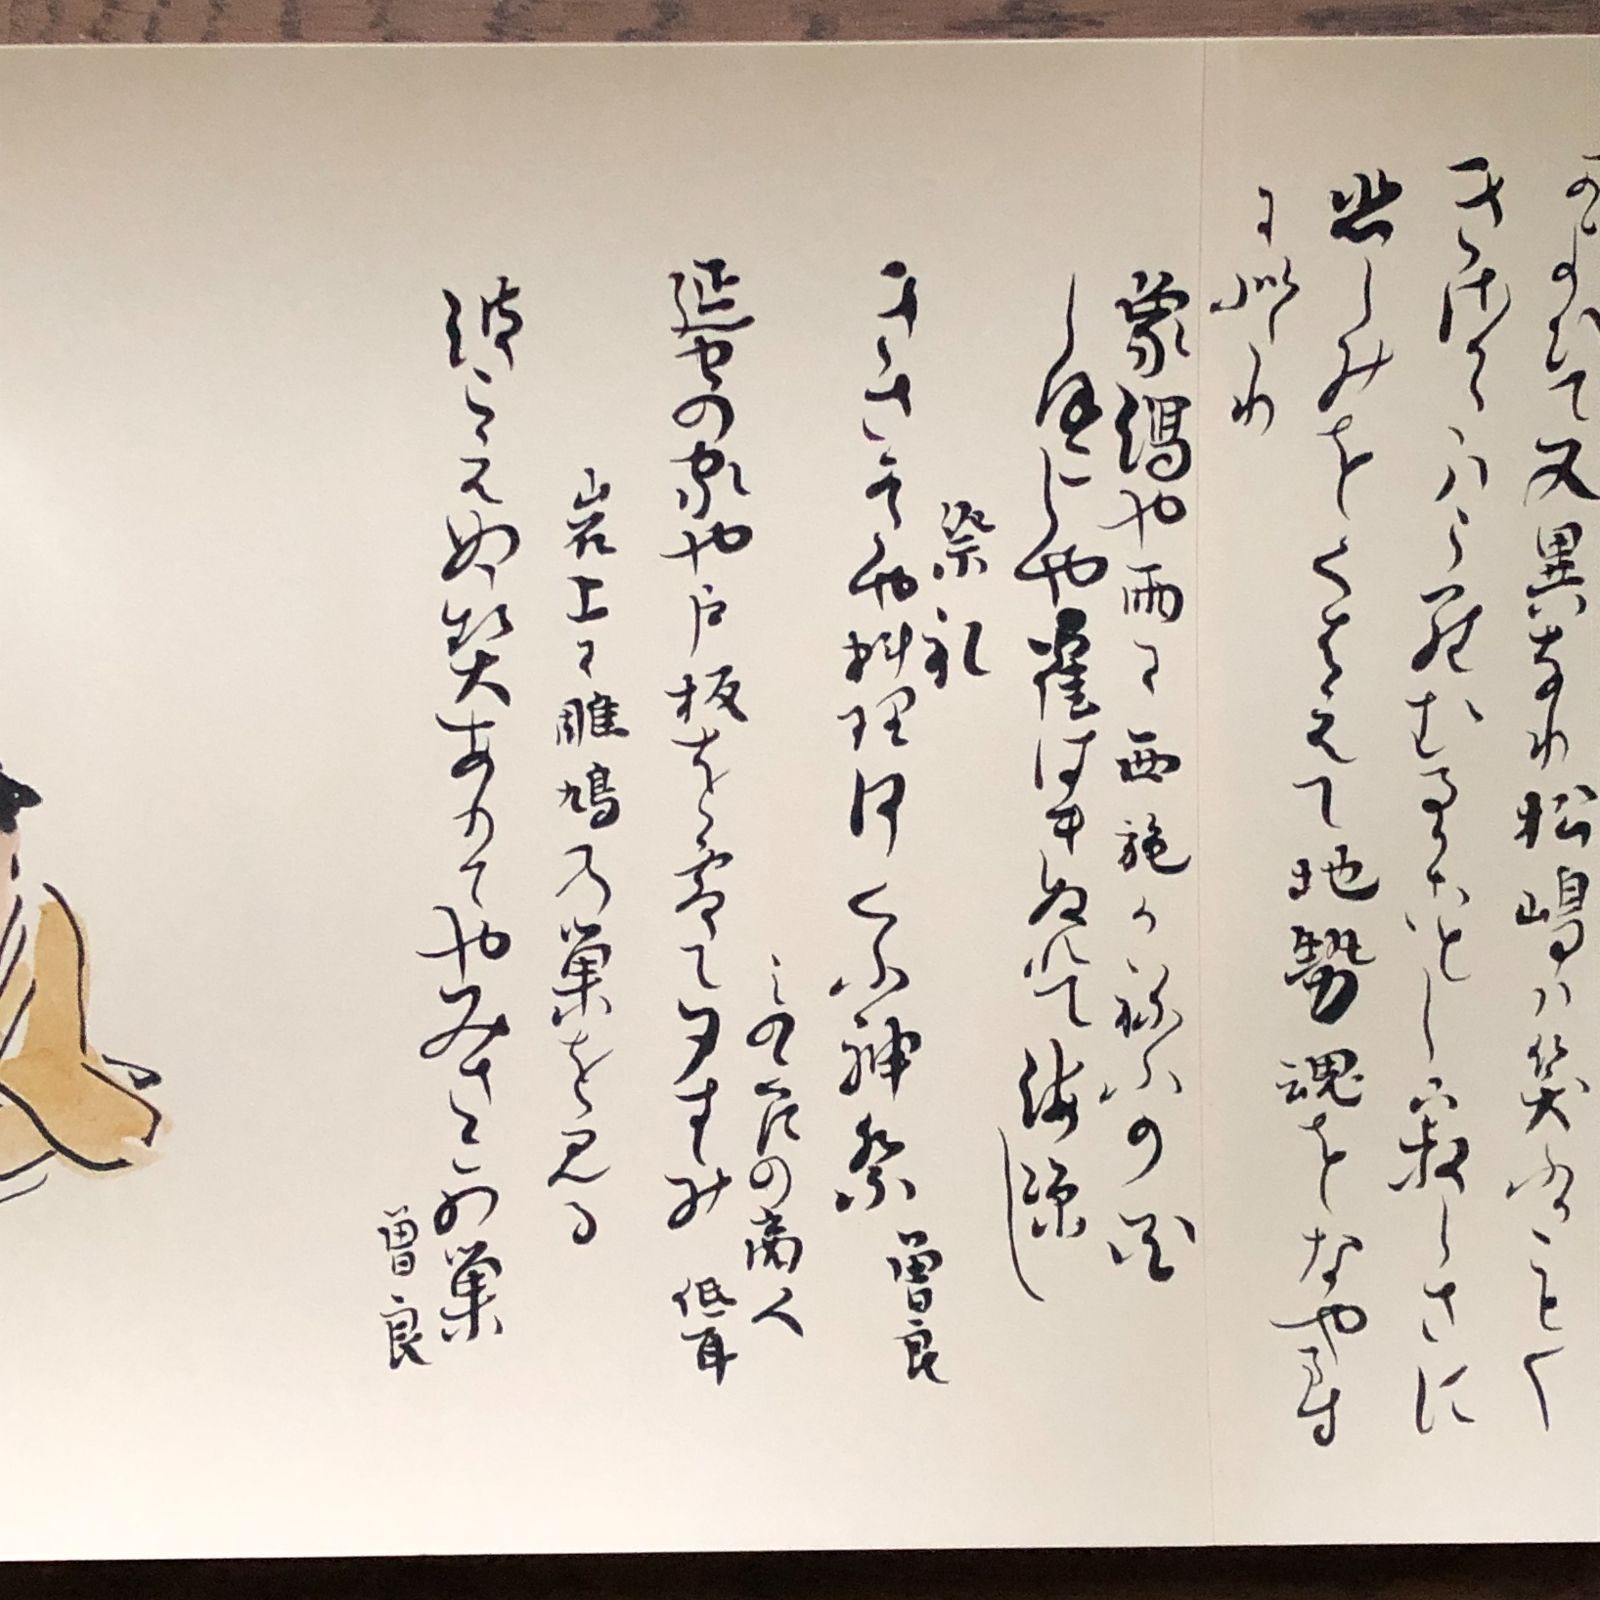 かよひて又異なり松嶋ハ笑ふかことく
象潟ハうらむるかことし寂しさに
悲しみをくはえて地勢魂をなやます
に似たり
象潟や雨に西施かねふの花
しほこしや鶴はきぬれて海涼し
祭礼
きさかたや料理何くふ神祭 曽良
みのゝ国の商人
蜑の家や戸板を敷て夕すゝみ 低耳
岩上に雎鳩の巣を見る
波こえぬ契ありてやみさこの巣
曽良